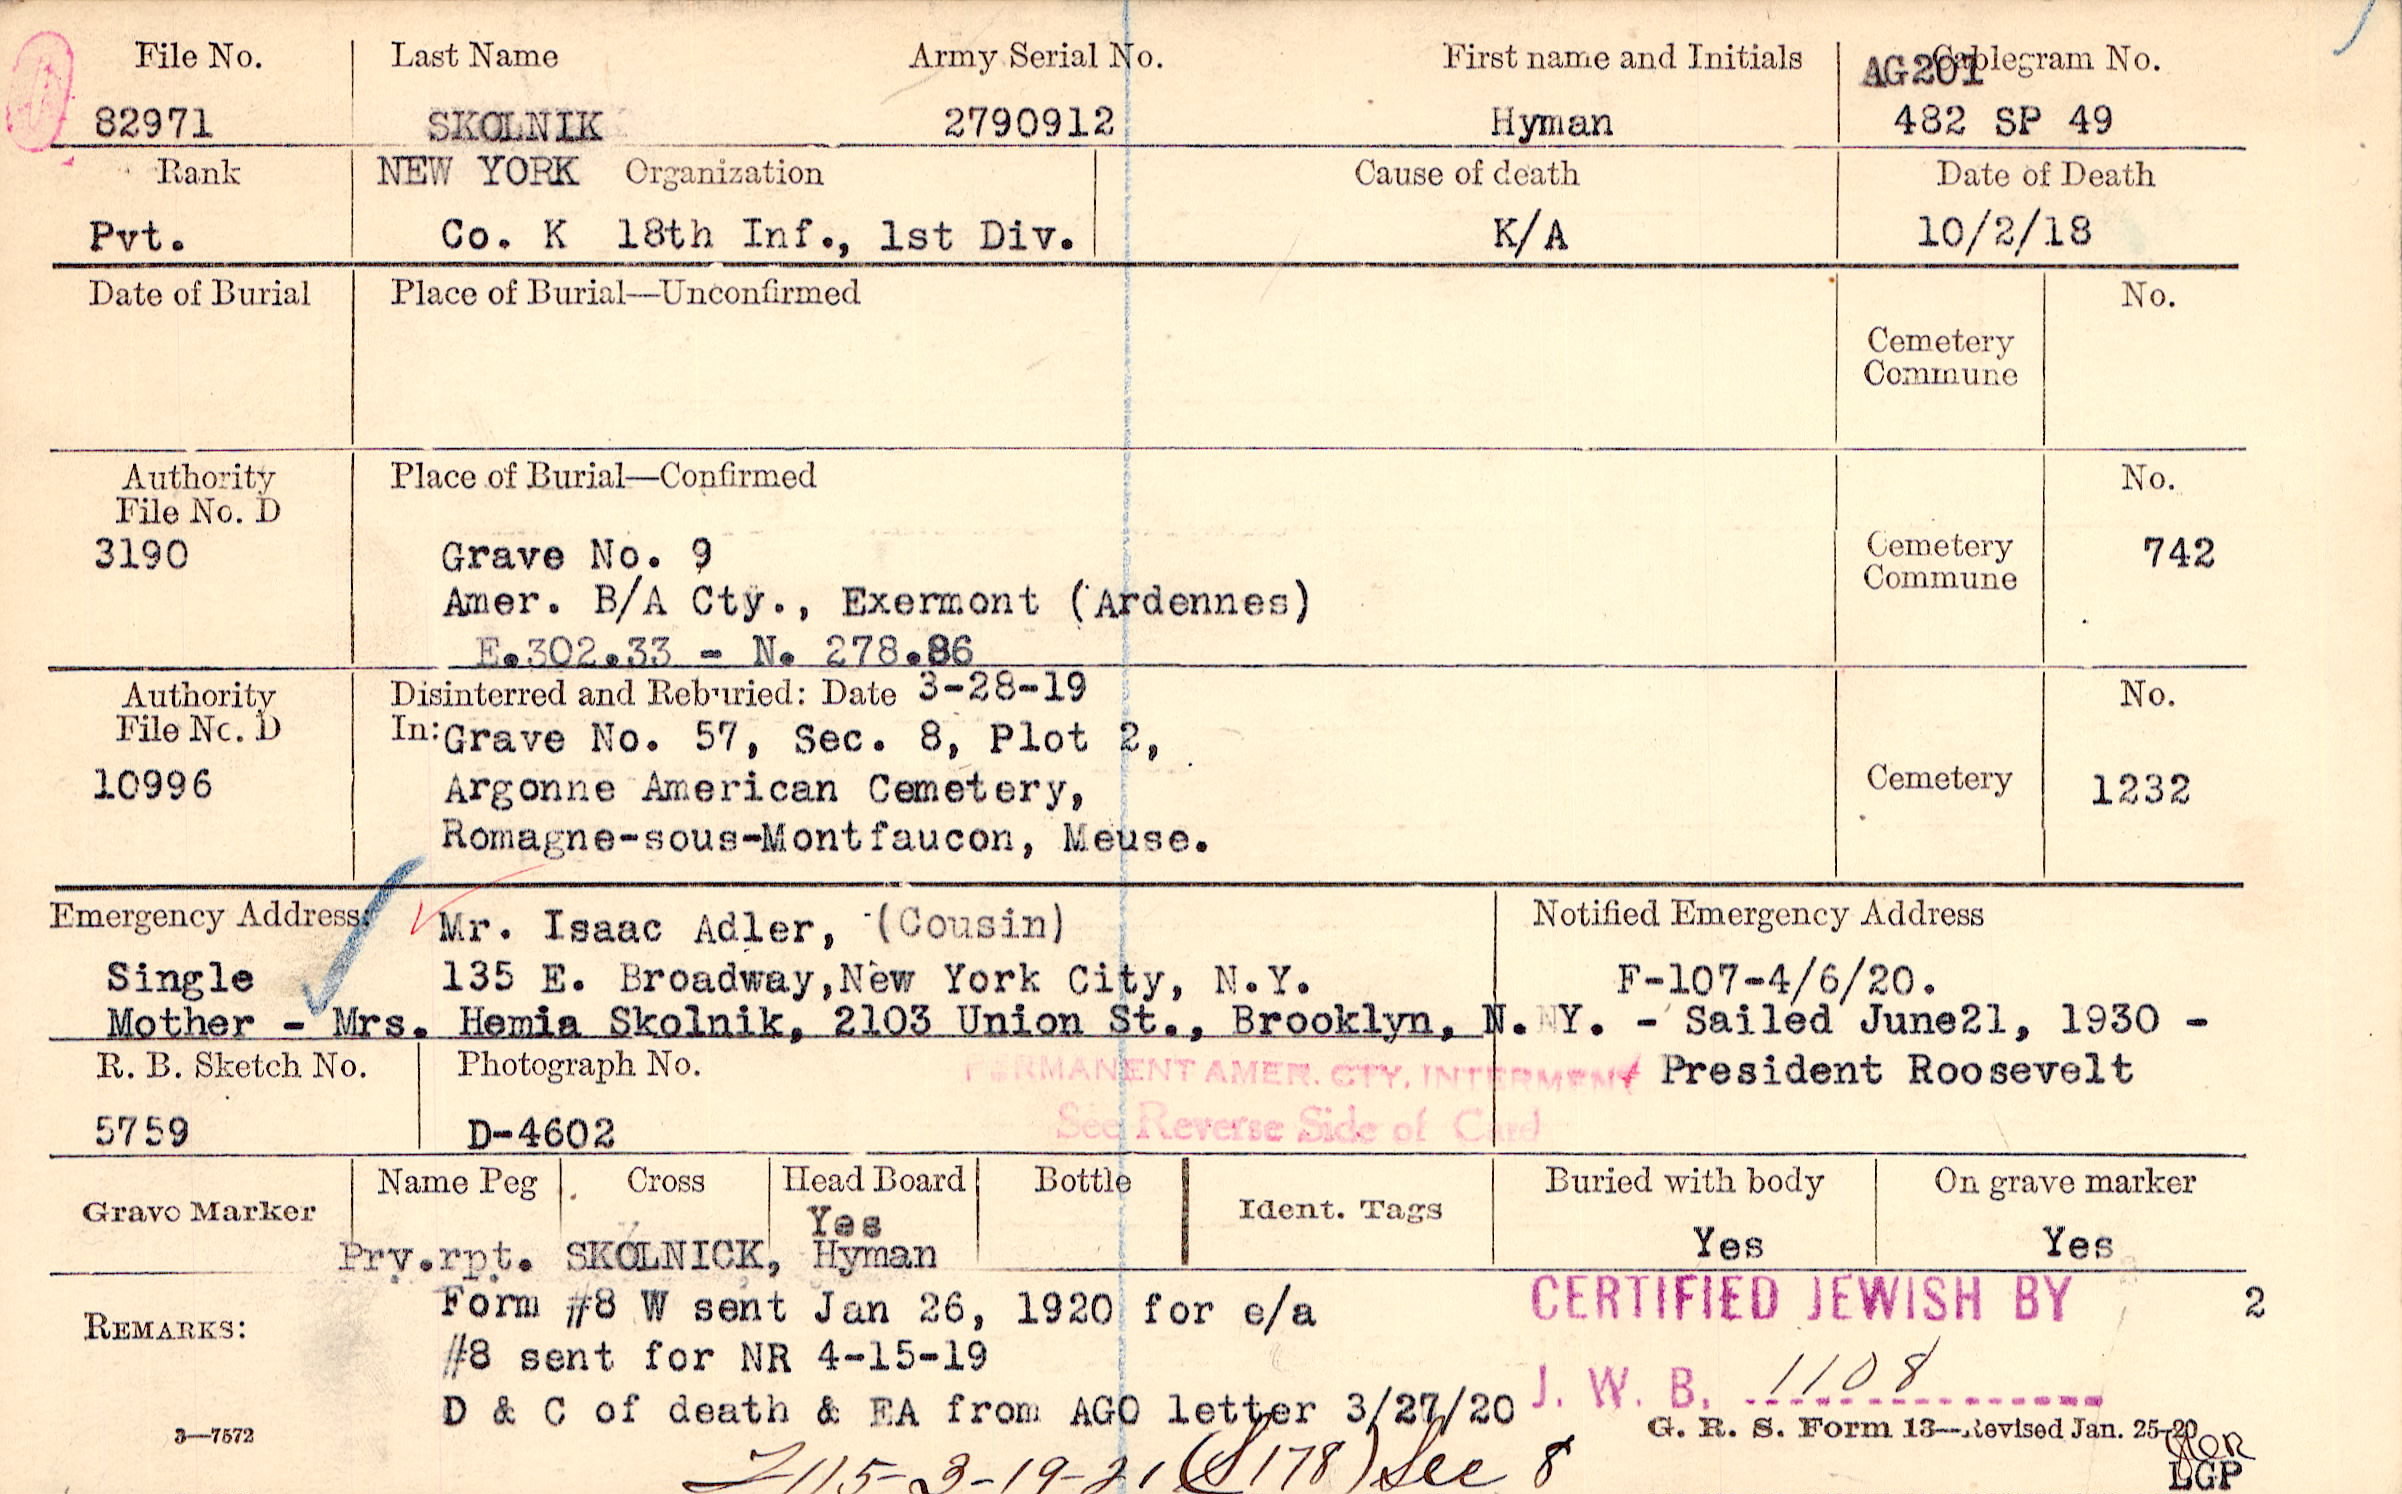 File No.
Last Name
Army Serial No.
First name and Initials
Cablegram No.
AG201
82971
SKOLNIK
2790912
Hyman
482 SP 49
Rank
NEW YORK
Organization
Cause of death
Date of Death
Pvt.
Co. K 18th Inf., 1st Div.
K/A
10/2/18
Date of Burial
Place of Burial—Unconfirmed
No.
Cemetery
Commune
Authority
File No. D
Place of Burial—Confirmed
No.
3190
Grave No. 9
Amer. B/A Cty., Exermont (Ardennes)
E.302.33 - N. 278.86
Cemetery
Commune
742
Authority
File No. D
Disinterred and Reburied: Date 3-28-19
No.
10996
In: Grave No. 57, Sec. 8, Plot 2,
Argonne American Cemetery,
Romagne-sous-Montfaucon, Meuse.
Cemetery
1232
Emergency Address:
Mr. Isaac Adler, (Cousin)
Notified Emergency Address
Single
135 E. Broadway,New York City, N.Y.
F-107-4/6/20.
Mother - Mrs. Hemia Skolnik, 2103 Union St., Brooklyn, N. Y. - Sailed June21, 1930 -
President Roosevelt
R. B. Sketch No.
Photograph No.
PERMANENT AMER. CTY. INTERMENT
See Reverse Side of Card
5759
D-4602
Grave Marker
Name Peg
Cross
Head Board
Bottle
Ident. Tags
Buried with body
On grave marker
Yes
Yes
Yes
Prv.rpt. SKOLNICK, Hyman
REMARKS:
Form #8 W sent Jan 26, 1920 for e/a
#8 sent for NR 4-15-19
D & C of death & EA from AGO letter 3/27/20
CERTIFIED JEWISH BY
2
J. W. B. 1108
3—7572
G. R. S. Form 13—Revised Jan. 25-20
3-19-21 (S178) Sec 8
LGP